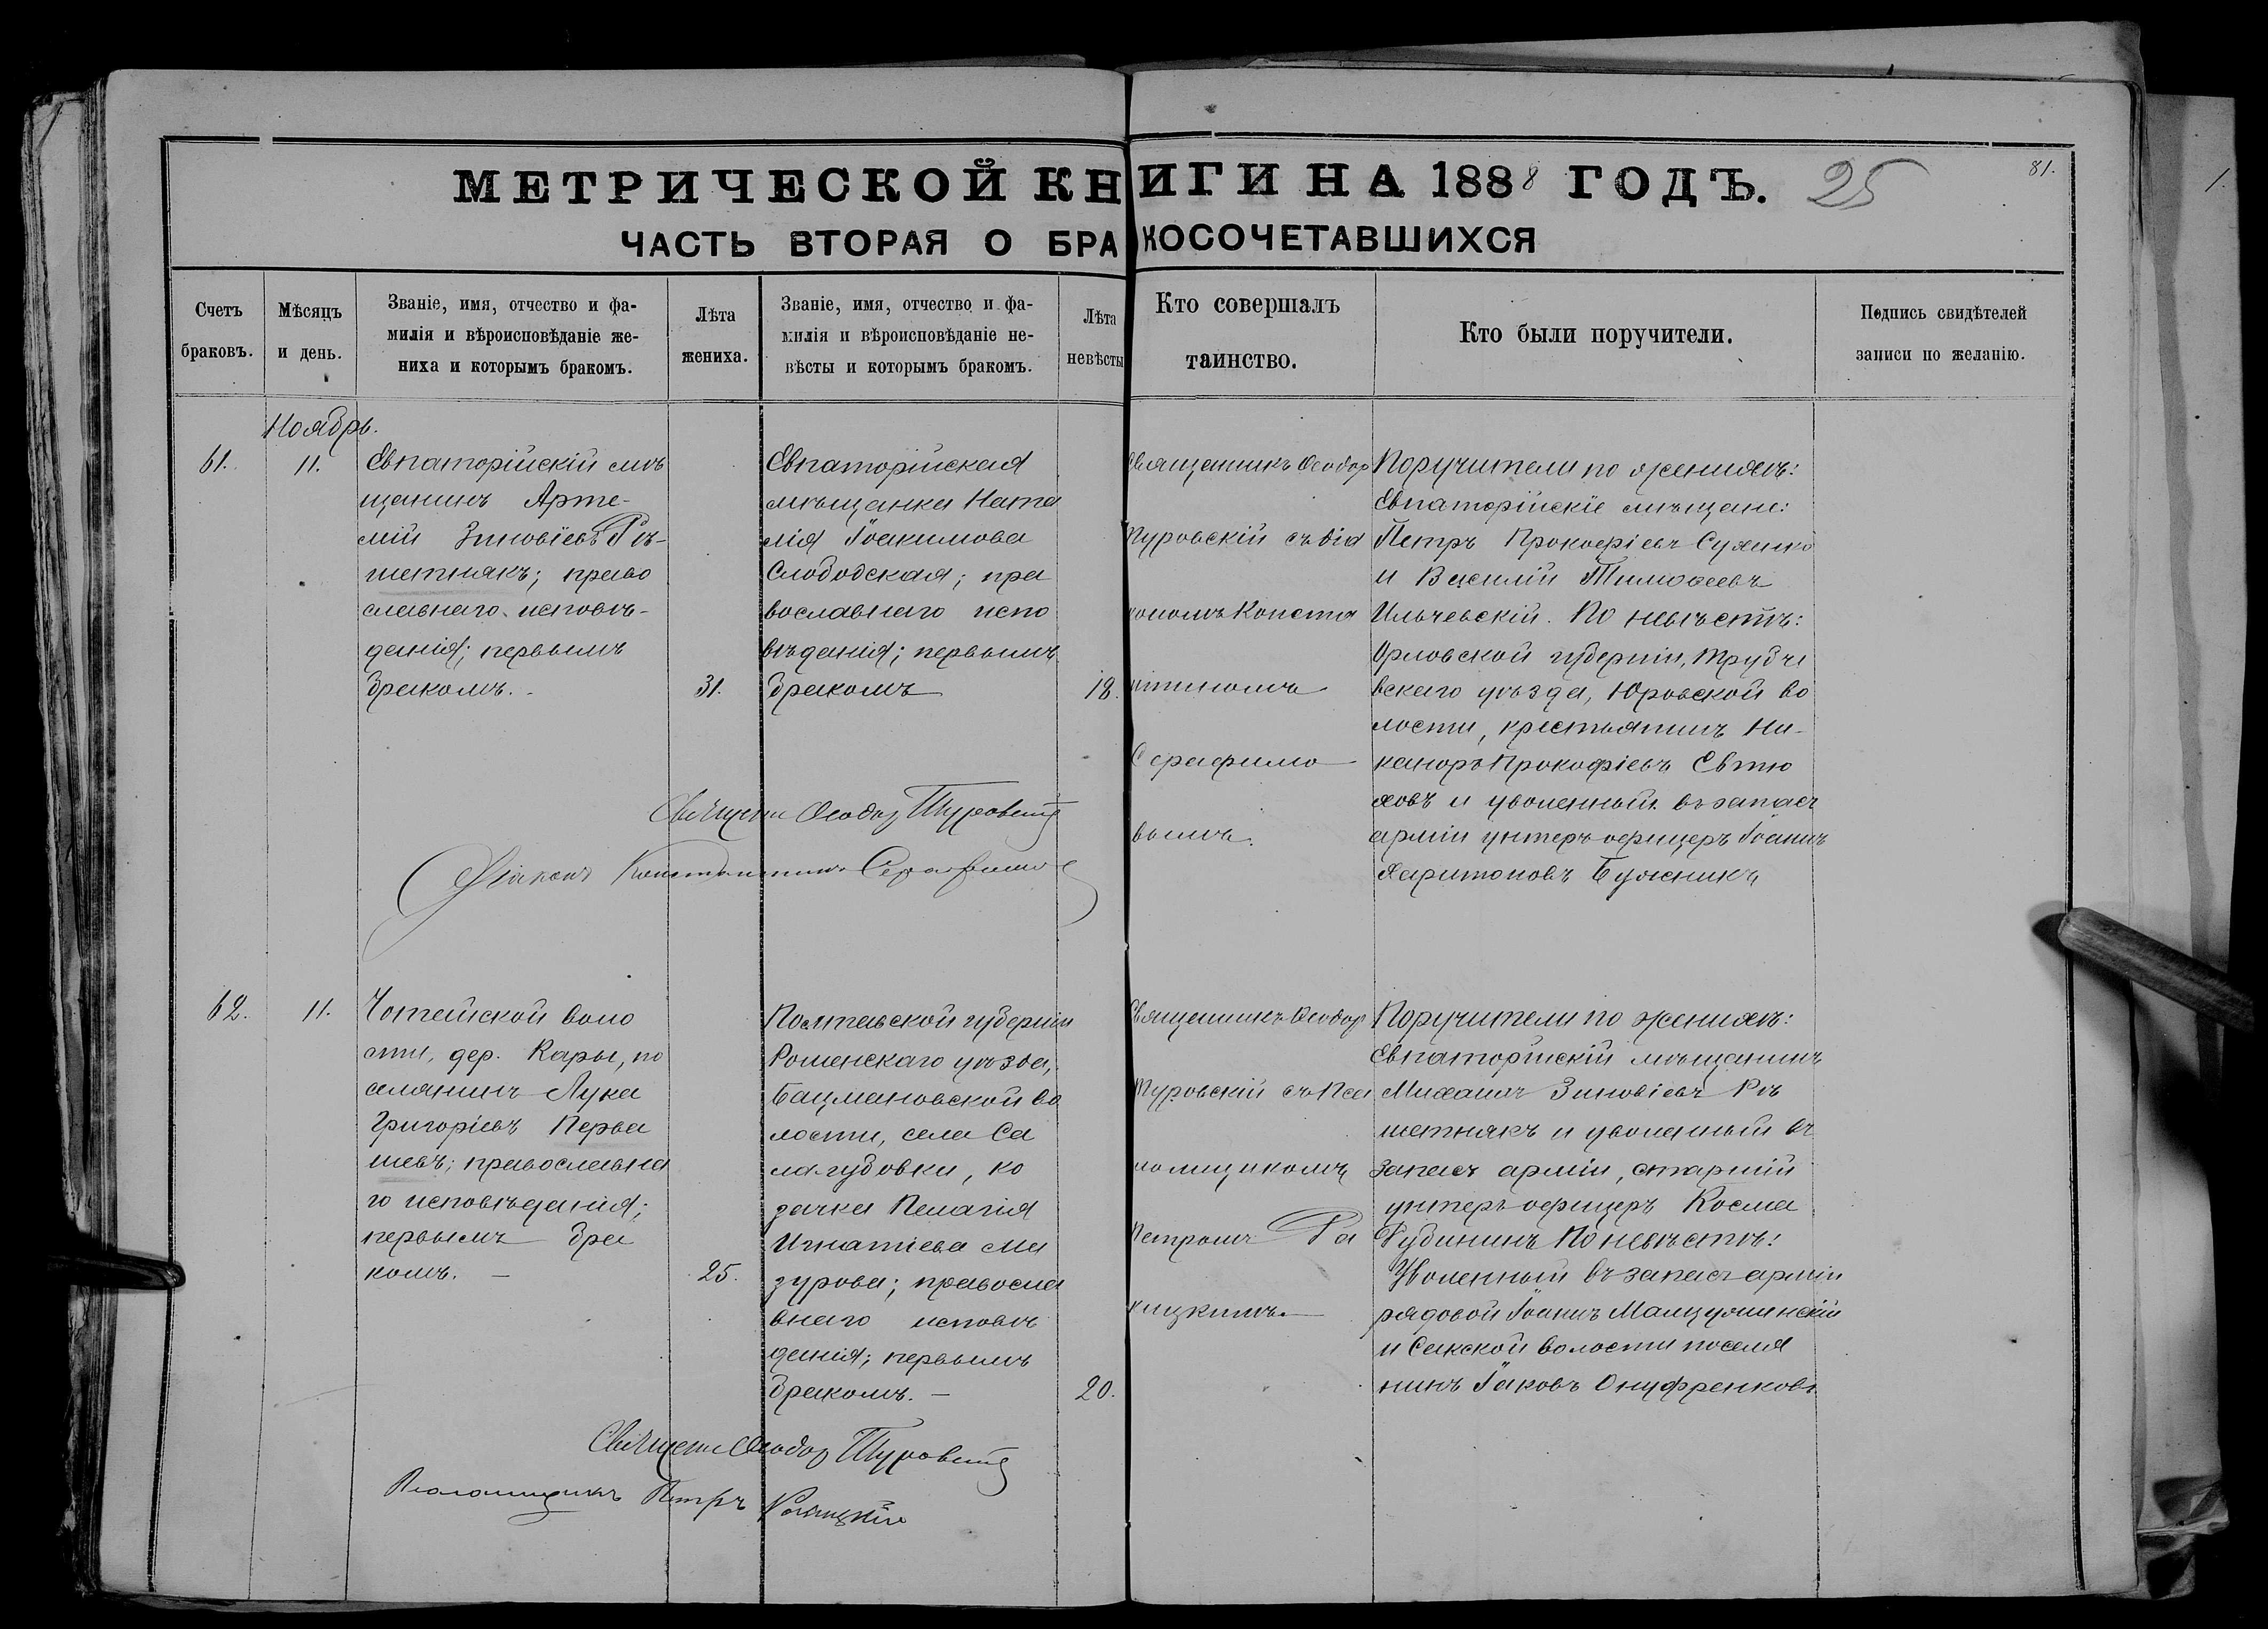 МЕТРИЧЕСКОЙ КНИГИ НА 1888 ГОДЪ. 25
81.
1.
ЧАСТЬ ВТОРАЯ О БРАКОСОЧЕТАВШИХСЯ
Счетъ
браковъ.
Мѣсяцъ
и день.
Званіе, имя, отчество и фа-
милія и вѣроисповѣданіе же-
ниха и которымъ бракомъ.
Лѣта
жениха.
Званіе, имя, отчество и фа-
милія и вѣроисповѣданіе не-
вѣсты и которымъ бракомъ.
Лѣта
невѣсты
Кто совершалъ
таинство.
Кто были поручители.
Подпись свидѣтелей
записи по желанію.
Ноябрь.
61.
11.
Евпаторійскій мѣ
щанинъ Арте-
мій Зиновіевъ Рѣ-
шетнякъ; право
славнаго исповѣ-
данія; первымъ
бракомъ.
31.
Евпаторійская
мѣщанка Ната
лія Іоакимова
Слободская; пра
вославнаго испо
вѣданія; первымъ
бракомъ
18.
Священникъ Ѳеодор
Туровскій съ діа
кономъ Конста
нтиномъ
Серафимо
вымъ.
Поручители по женихѣ:
Евпаторійскіе мѣщане:
Петръ Прокофіевъ
и Василій Тимоѳеевъ
Ильчевскій. По невѣстѣ:
Орловской губерніи, Трубче
вскаго уѣзда, Юровской во
лости, крестьянинъ Ни-
каноръ Прокофіевъ Евтю
ховъ и уволенный въ запасъ
арміи унтеръ офицеръ Іоаннъ
Харитоновъ
Священн Ѳеодоръ Туровскій
Діаконъ Константинъ Серафимов
62.
11.
Чотайской воло
сти, дер. Кары, по
селянинъ Лука
Григоріевъ Перва
шевъ; православна
го исповѣданія;
первымъ бра
комъ.
25.
Полтавской губерніи
Роменскаго уѣзда,
Бацмановской во
лости, села Са
ла губовки, ко
зачка Пелагія
Игнатіева Ма
зурова; правосла
внаго исповѣ
данія; первымъ
бракомъ.
20.
Священникъ Ѳеодор
Туровскій съ Пса
ломщикомъ
Петромъ Ра
кицкимъ.
Поручители по женихѣ:
Евпаторійскій мѣщанинъ
Михаилъ Зиновіевъ Рѣ
шетнякъ и уволенный въ
запасъ арміи, старшій
унтеръ офицеръ Косма
Рубининъ По невѣстѣ:
Уволенный въ запасъ арміи
рядовой Іоаннъ
и Сакской волости поселя
нинъ Іаковъ Онуфренковъ
Священн Ѳеодоръ Туровскій
Псаломщикъ Петръ Ракицкій